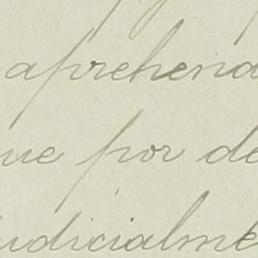 aprehend
ue por de
udicialme